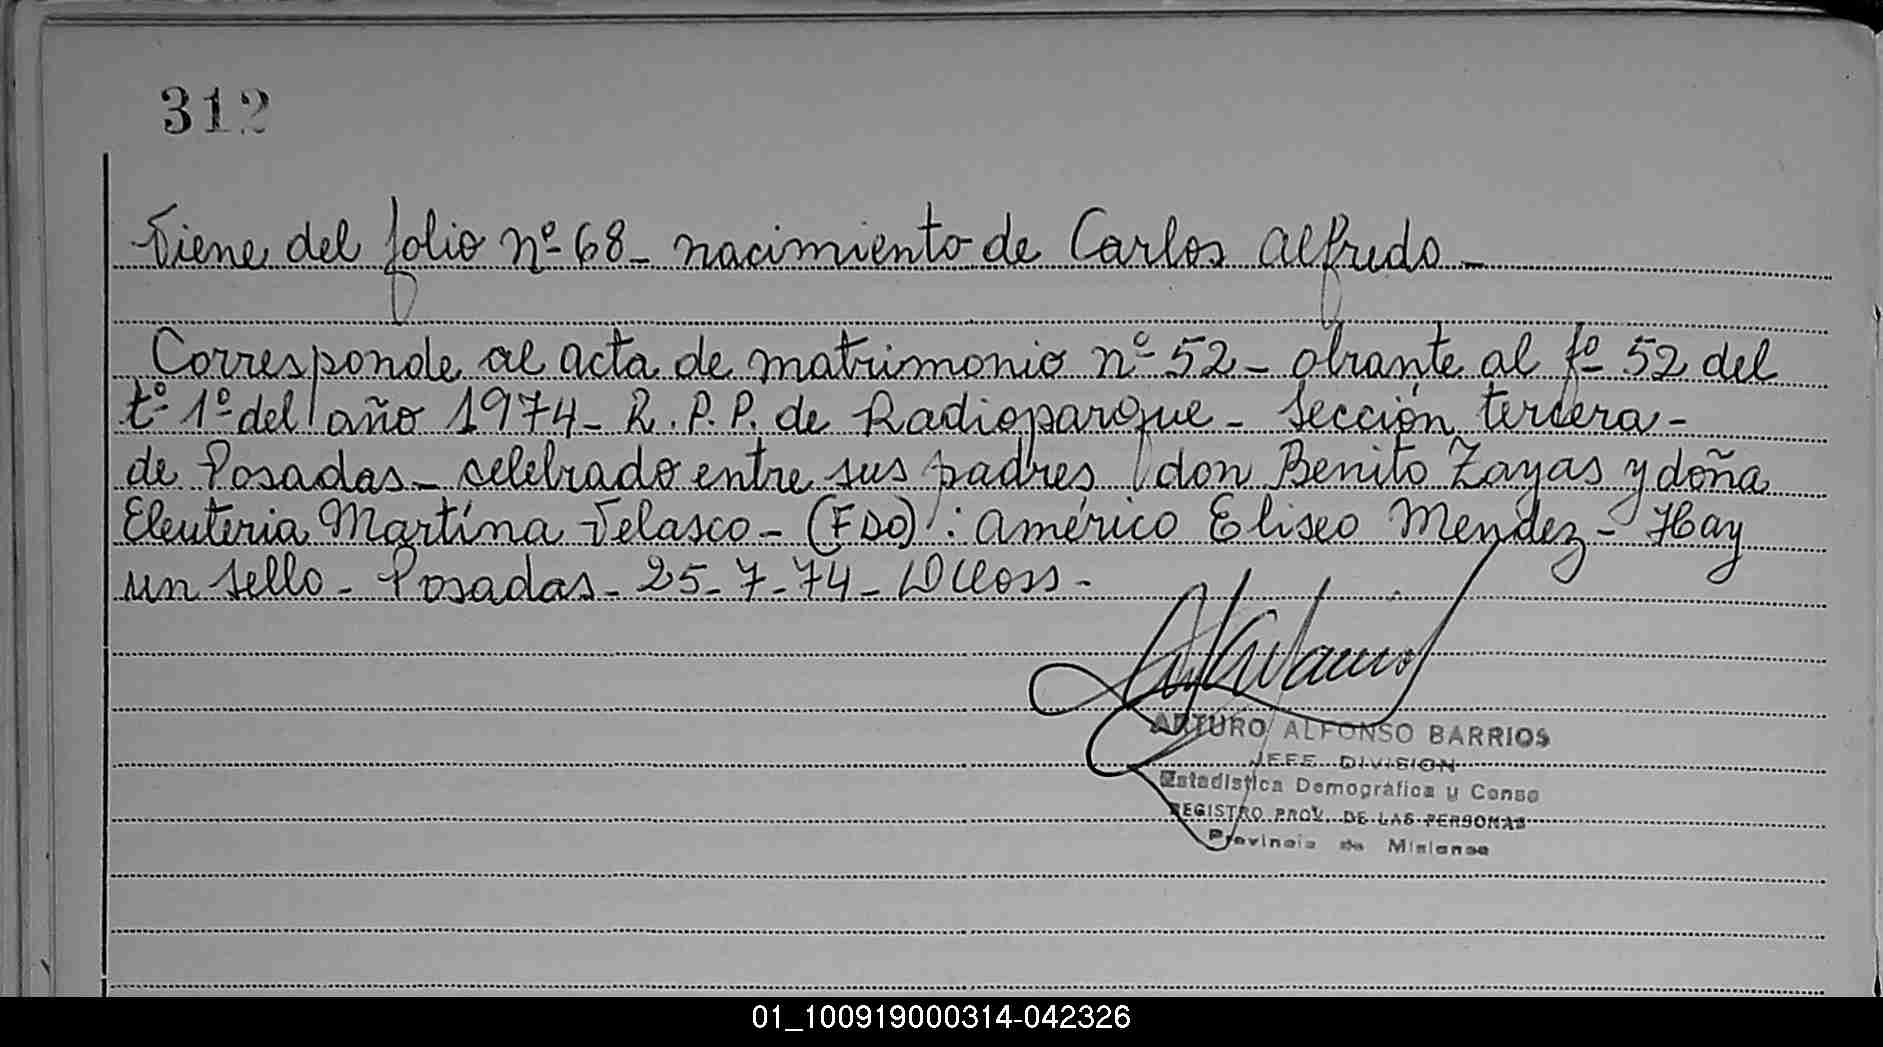 312
Viene del folio nº 68_ nacimiento de Carlos Alfredo_
Corresponde al acta de matrimonio nº 52_ obrante al fº 52 del
tº 1º del año 1974_ R.P.P. de Radioparque_ Sección tercera_
de Posadas_ celebrado entre sus padres don Benito Zayas y doña
Eleuteria Martína Velasco_ (FDO): Américo Eliseo Mendez_ Hay
un sello_ Posadas_ 25_7_74_
ARTURO ALFONSO BARRIOS
JEFE DIVISION
Estadística Demográfica y Censo
REGISTRO PROV. DE LAS PERSONAS
Provincia de Misiones
01_100919000314-042326